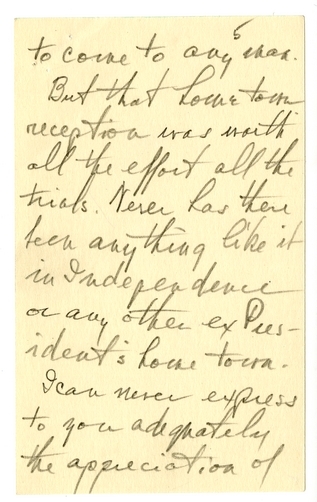 5
to come to any man.
But that home town
reception was worth
all the effort all the
trials. Never has there
been anything like it
in Independence
or any other ex Pres-
ident's home town.
I can never express
to you adequately
the appreciation of